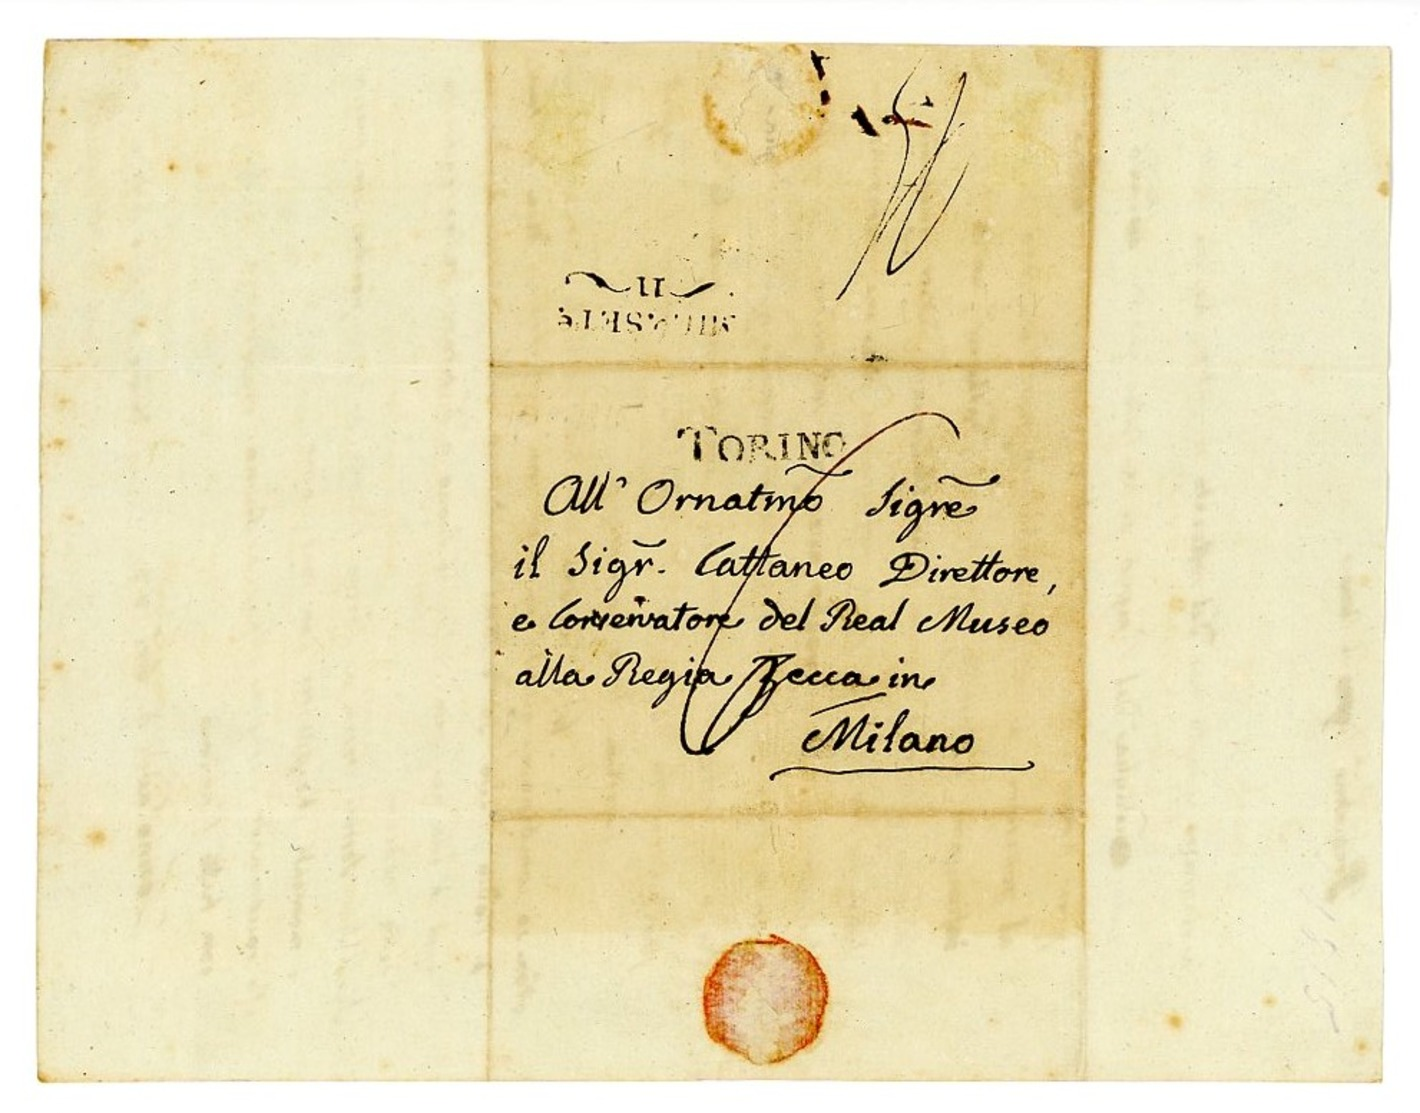 TORINO
All' Ornatmo Sigre
il Sigr. Cattaneo Direttore,
e Conservatore del Real Museo
alla Regia Zecca in
Milano
11